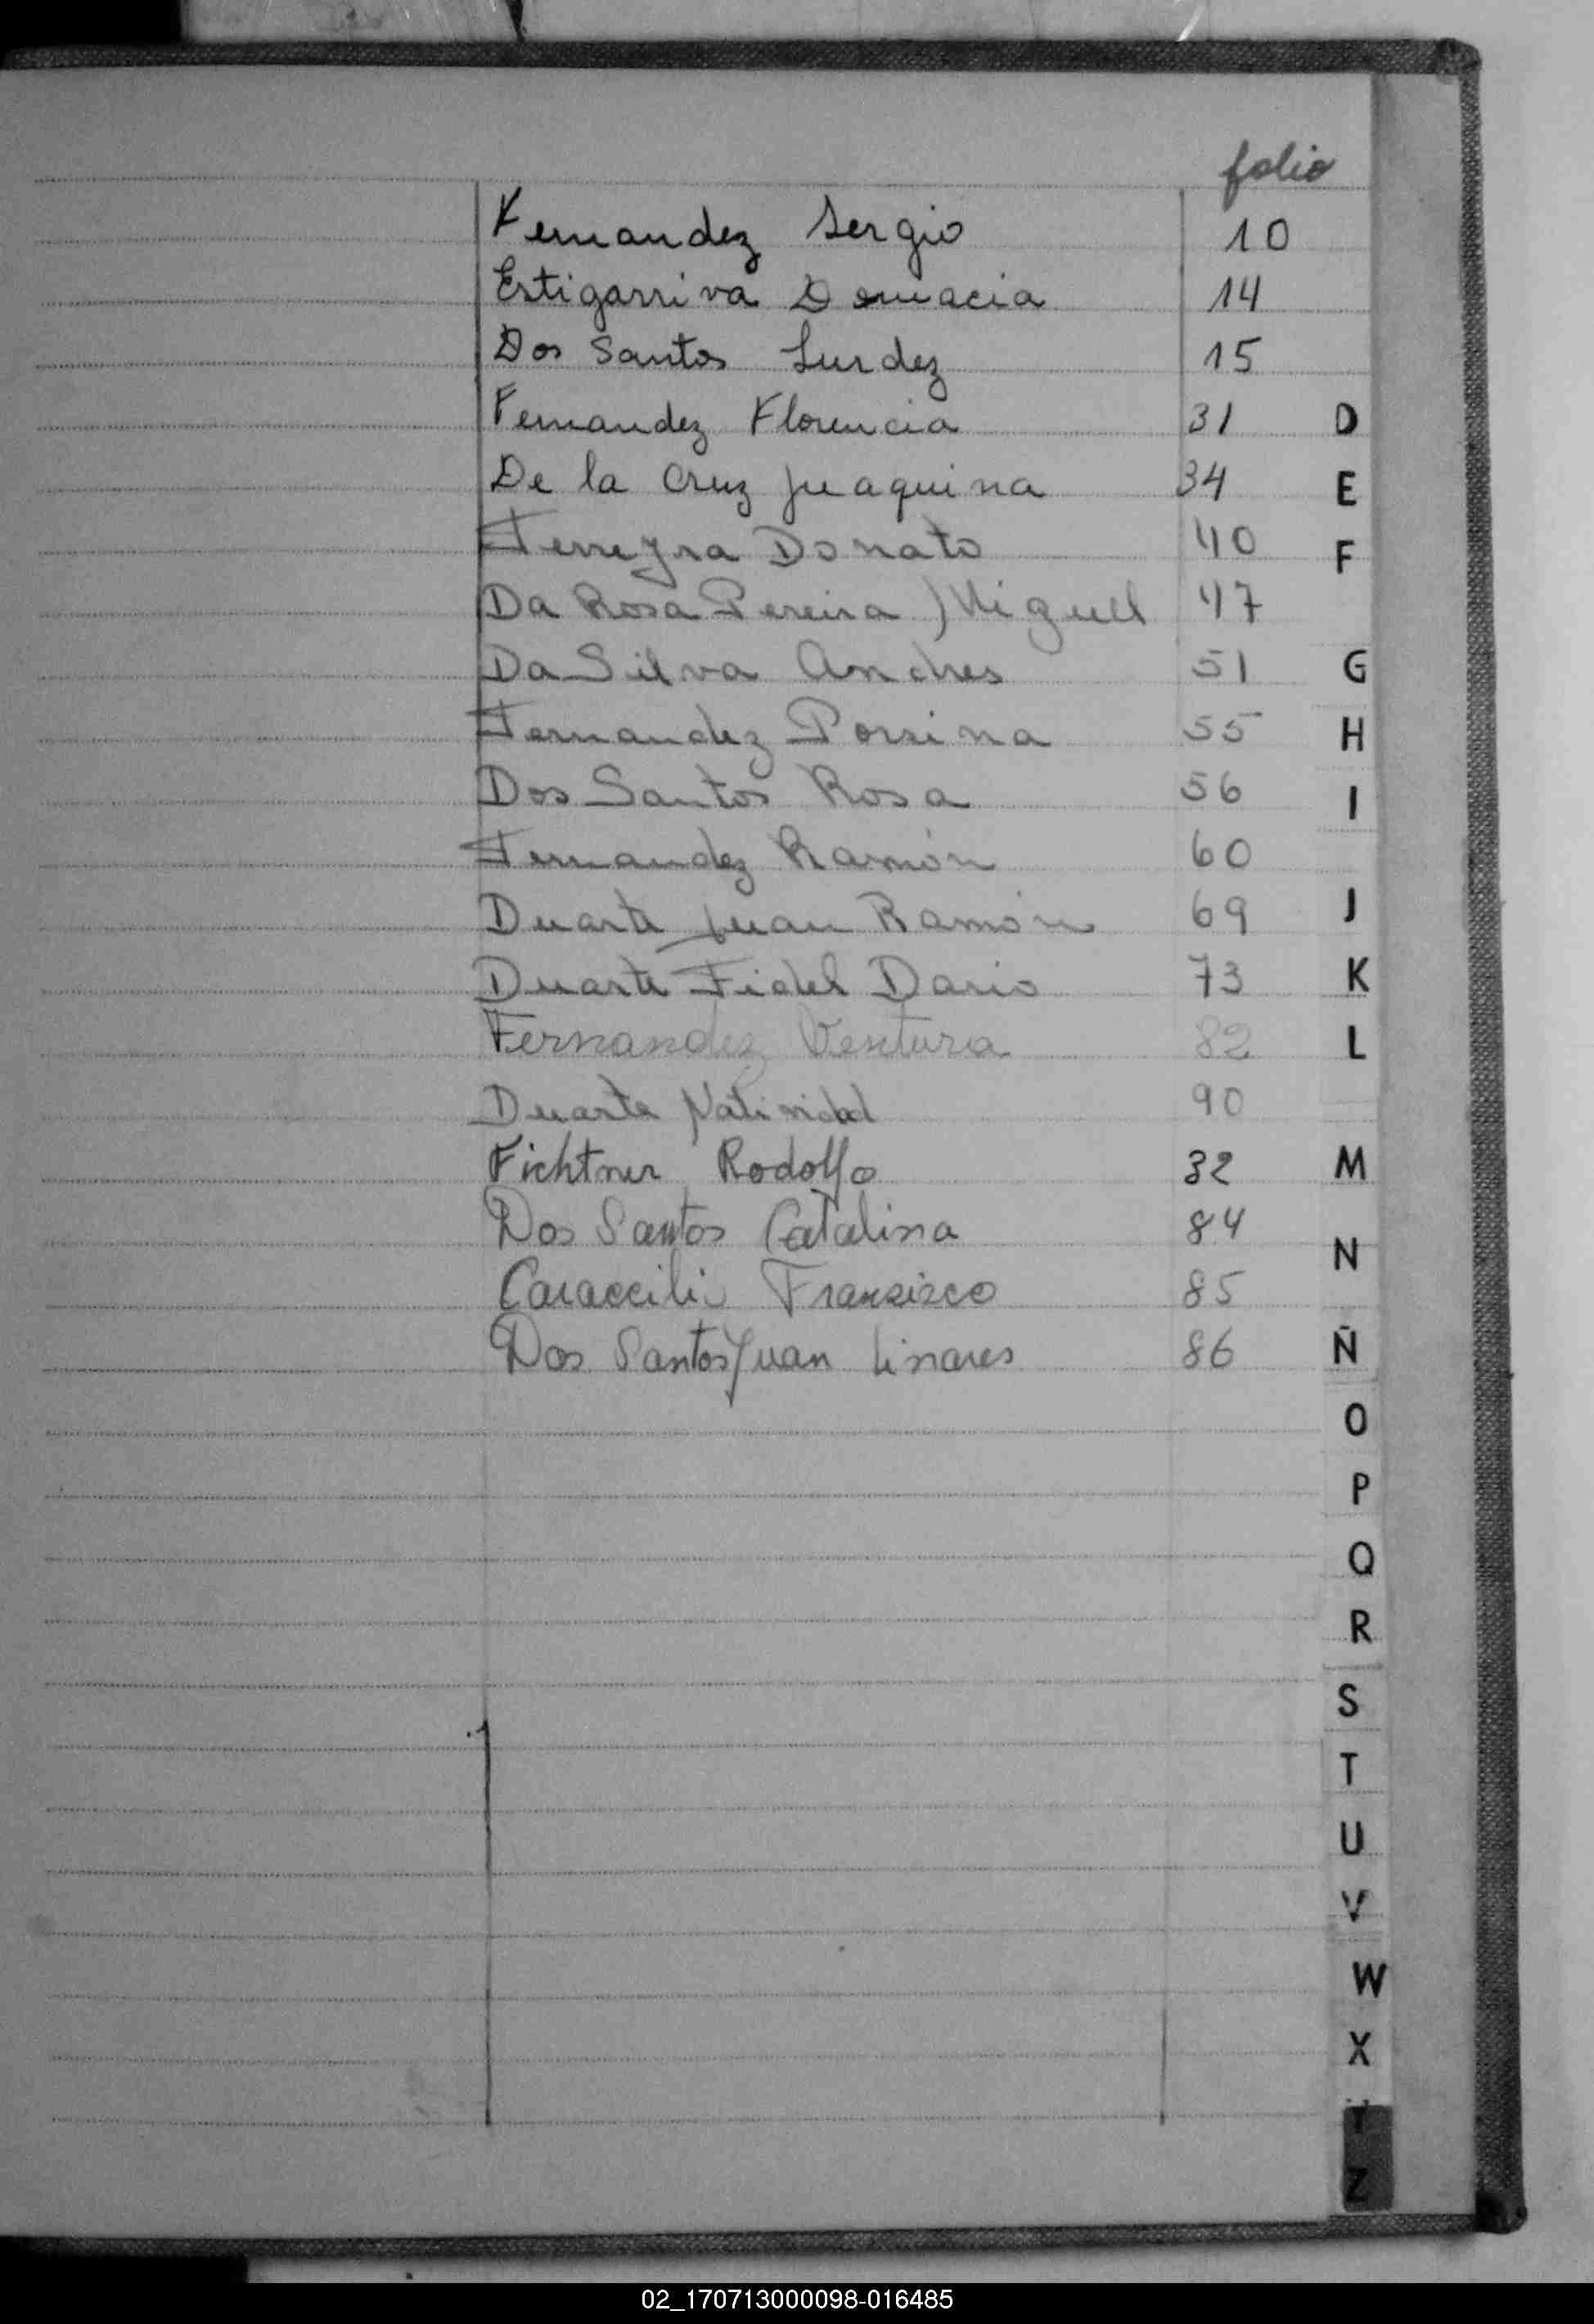 folio
Fernandez Sergio 10
Estigarriva Domacia 14
Dos Santos Lurdez 15
Fernandez Florencia 31
De la Cruz Juaquina 34
Ferreyra Donato 40
Da Rosa Pereira Miguel 47
Da Silva Andres 51
Fernandez Porsina 55
Dos Santos Rosa 56
Fernandez Ramón 60
Duarte Juan Ramón 69
Duarte Fidel Dario 73
Fernandez Ventura 82
Duarte Natividad 90
Fichtner Rodolfo 32
Dos Santos Catalina 84
Caraccili Fransisco 85
Dos Santos Juan Linares 86
D
E
F
G
H
I
J
K
L
M
N
Ñ
O
P
Q
R
S
T
U
V
W
X
Y
Z
02_170713000098-016485